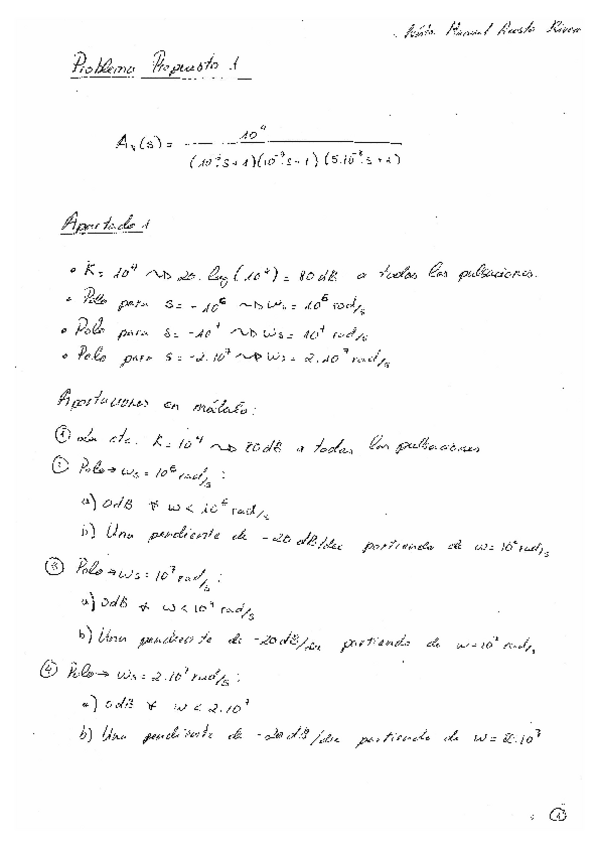 Manuel Acosta Rivera
Problema Propuesto 1
Av(s) = 10^4 / (10^-6·s+1)(10^-7·s+1)(5·10^-8·s+1)
Apartado 1
• K = 10^4 ⇝ 20·log(10^4) = 80 dB a todas las pulsaciones.
• Polo para s = -10^6 ⇝ ωs = 10^6 rad/s
• Polo para s = -10^7 ⇝ ωs = 10^7 rad/s
• Polo para s = -2·10^7 ⇝ ωs = 2·10^7 rad/s
Aportaciones en módulo:
① La cte. K = 10^4 ⇝ 80dB a todas las pulsaciones
② Polo → ωs = 10^6 rad/s :
a) 0dB ∀ ω < 10^6 rad/s
b) Una pendiente de -20 dB/dec partiendo de ω = 10^6 rad/s
③ Polo → ωs = 10^7 rad/s :
a) 0dB ∀ ω < 10^7 rad/s
b) Una pendiente de -20dB/dec partiendo de ω = 10^7 rad/s
④ Polo → ωs = 2·10^7 rad/s :
a) 0dB ∀ ω < 2·10^7
b) Una pendiente de -20dB/dec partiendo de ω = 2·10^7
①